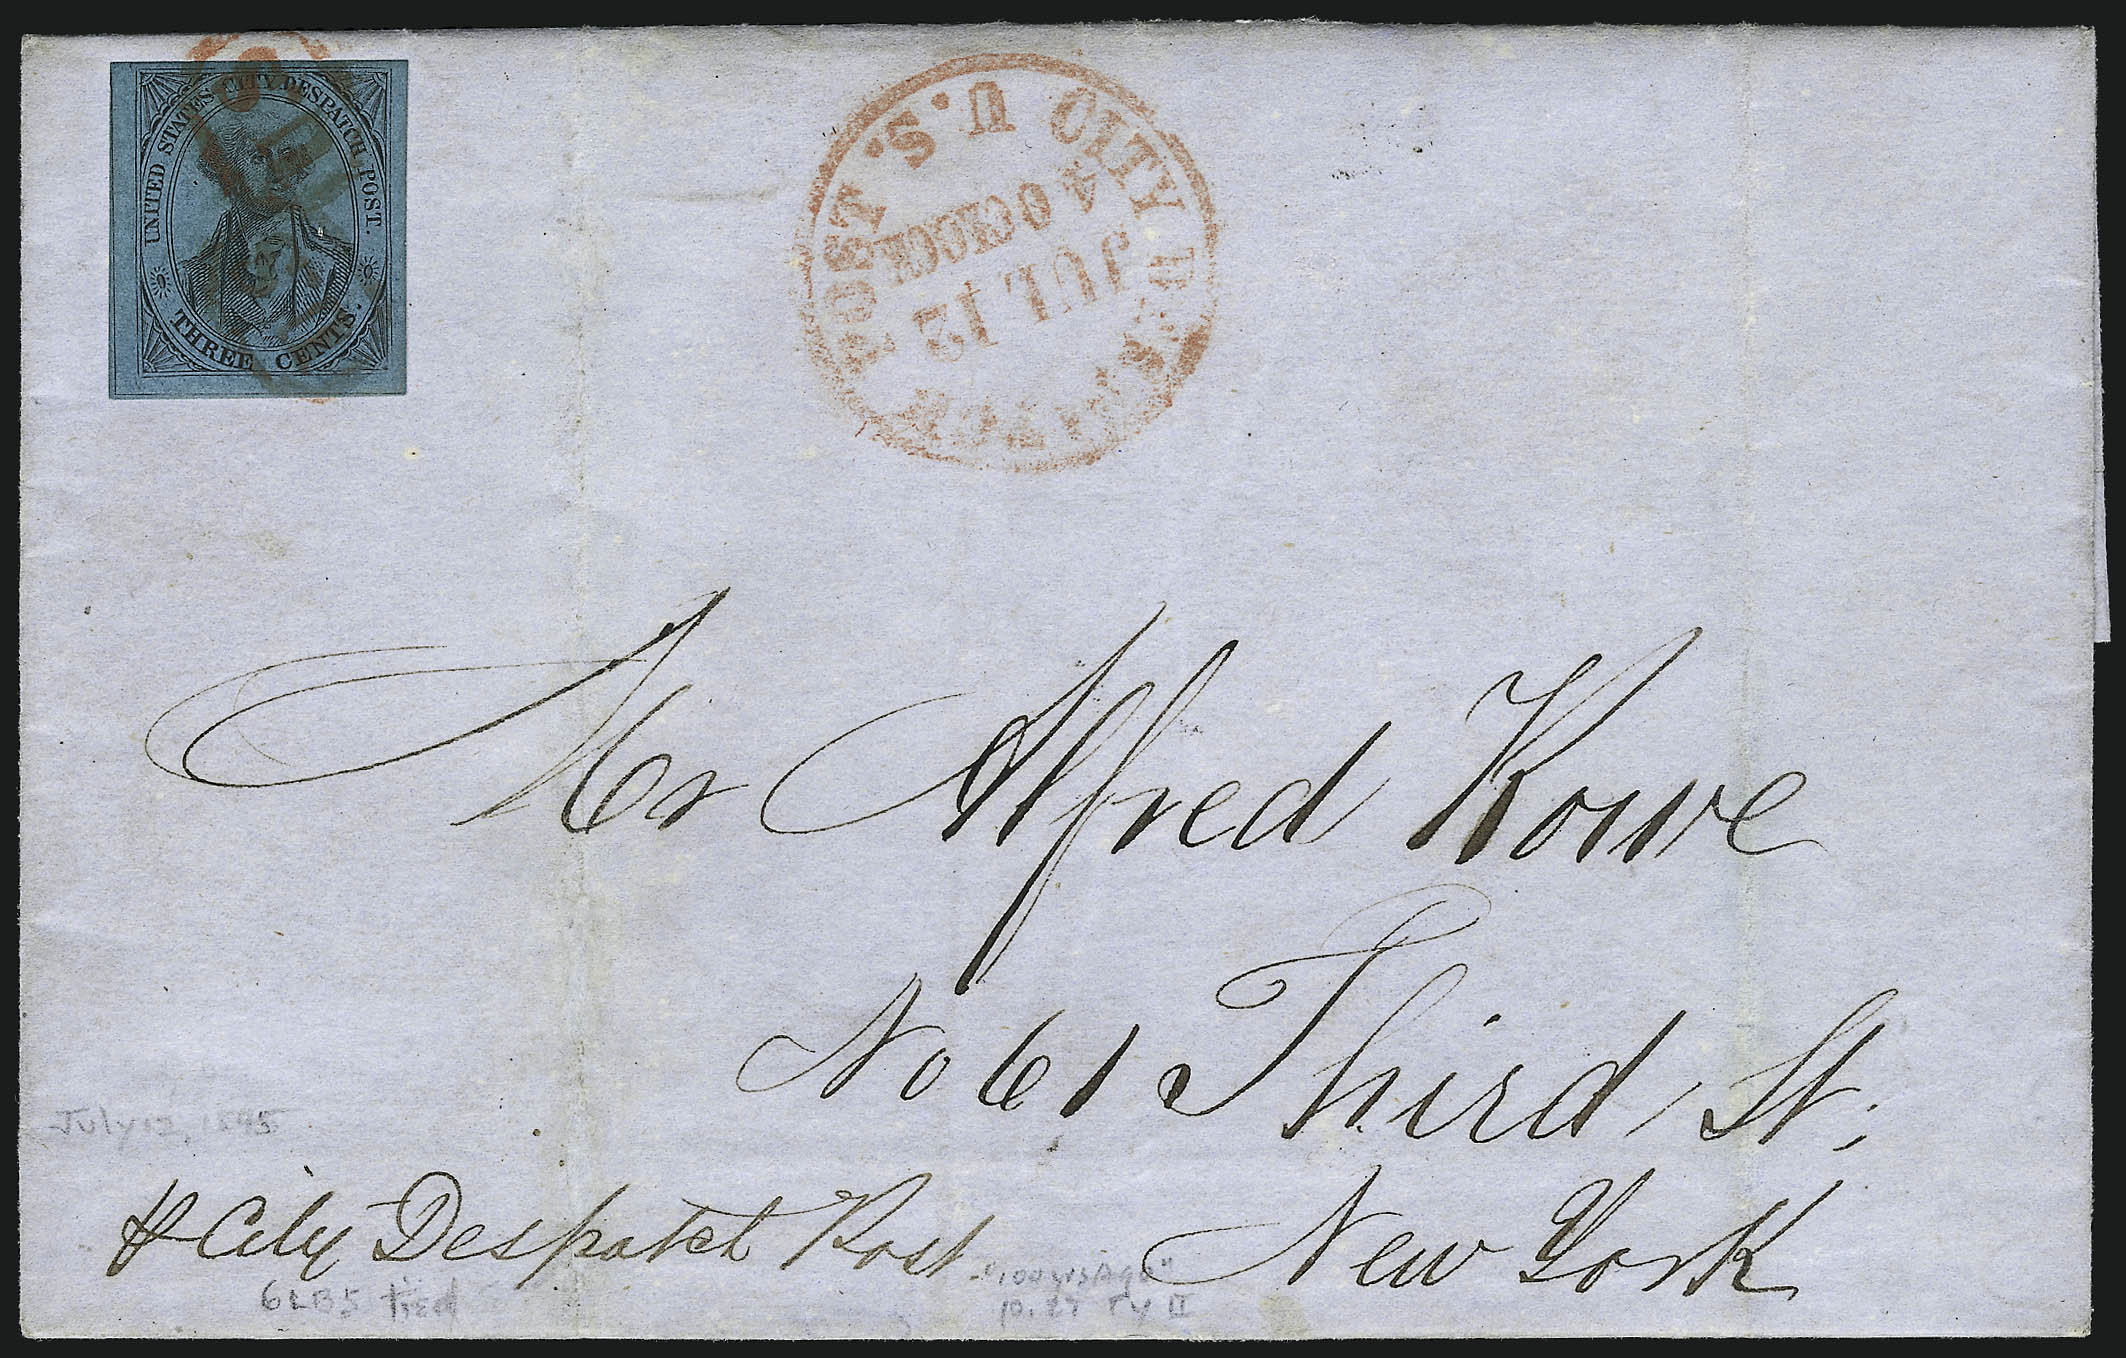 UNITED STATES CITY DESPATCH POST.
THREE CENTS.
U.S. CITY DESPATCH POST
4 OCLOCK
JUL 12
Mr Alfred Rowe
No 61 Third St;
New York
July 12, 1845
City Despatch Post
6LB5 tied
"100 yrs Ago"
p. 27 Ty II